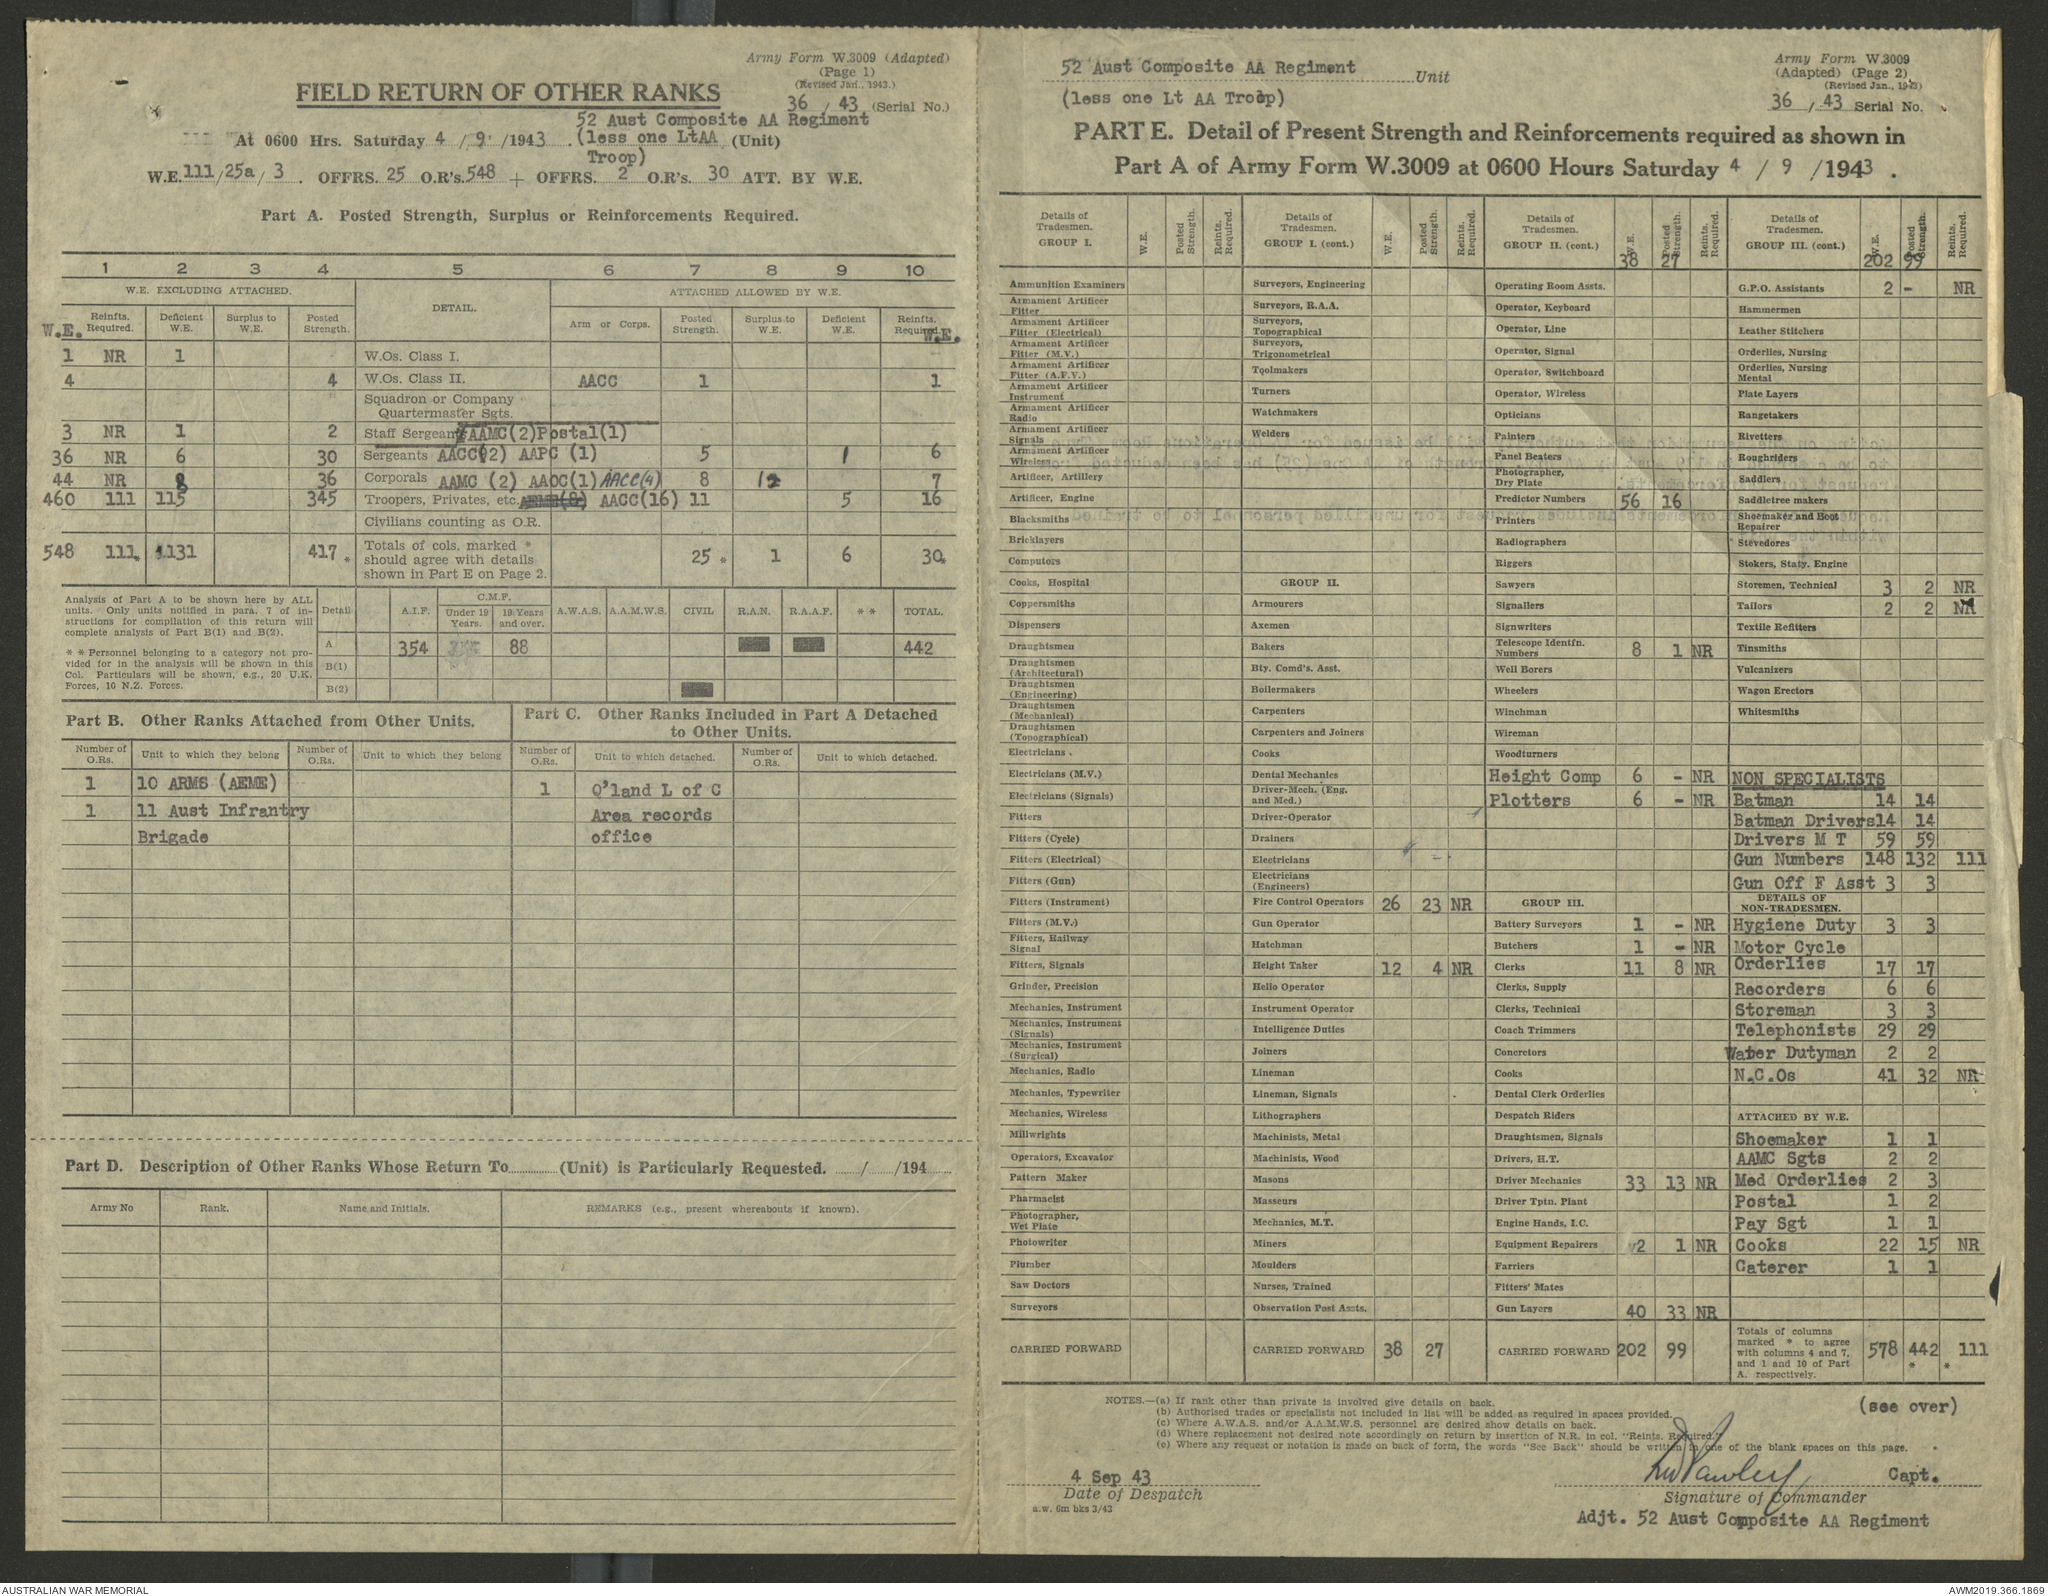 Army Form W.3009 (Adapted)
(Page 1)
(Revised Jan., 1943.)
FIELD RETURN OF OTHER RANKS
36 / 43 (Serial No.)
52 Aust Composite AA Regiment
At 0600 Hrs. Saturday 4 / 9 / 1943 . (less one LtAA (Unit)
Troop)
W.E. 111/25a/3 . OFFRS. 25 O.R's. 548 + OFFRS. 2 O.R's. 30 ATT. BY W.E.
Part A. Posted Strength, Surplus or Reinforcements Required.
1 2 3 4 5 6 7 8 9 10
W.E. EXCLUDING ATTACHED. DETAIL. ATTACHED ALLOWED BY W.E.
W.E. Reinfts. Required. Deficient W.E. Surplus to W.E. Posted Strength. Arm or Corps. Posted Strength. Surplus to W.E. Deficient W.E. Reinfts. Required. W.E.
1 NR 1 W.Os. Class I.
4 4 W.Os. Class II. AACC 1 1
Squadron or Company
Quartermaster Sgts.
3 NR 1 2 Staff Sergeants AAMC(2)Postal(1)
36 NR 6 30 Sergeants AACC(2) AAPC (1) 5 1 6
44 NR 8 36 Corporals AAMC (2) AAOC(1) AACC(4) 8 1 7
460 111 115 345 Troopers, Privates, etc. AACC(16) 11 5 16
Civilians counting as O.R.
548 111* 131 417* Totals of cols. marked * should agree with details shown in Part E on Page 2. 25* 1 6 30*
Analysis of Part A to be shown here by ALL
units. Only units notified in para. 7 of in-
structions for compilation of this return will
complete analysis of Part B(1) and B(2).
* * Personnel belonging to a category not pro-
vided for in the analysis will be shown in this
Col. Particulars will be shown, e.g., 20 U.K.
Forces, 10 N.Z. Forces.
Detail A.I.F. C.M.F. Under 19 Years. 19 Years and over. A.W.A.S. A.A.M.W.S. CIVIL R.A.N. R.A.A.F. * * TOTAL.
A 354 88 442
B(1)
B(2)
Part B. Other Ranks Attached from Other Units.
Part C. Other Ranks Included in Part A Detached
to Other Units.
Number of O.Rs. Unit to which they belong Number of O.Rs. Unit to which they belong Number of O.Rs. Unit to which detached. Number of O.Rs. Unit to which detached.
1 10 ARMS (AEME) 1 Q'land L of C
1 11 Aust Infrantry Area records
Brigade office
Part D. Description of Other Ranks Whose Return To (Unit) is Particularly Requested. / /194
Army No Rank. Name and Initials. REMARKS (e.g., present whereabouts if known).
52 Aust Composite AA Regiment Unit
(less one Lt AA Troop)
Army Form W.3009
(Adapted) (Page 2)
(Revised Jan., 1943)
36 / 43 Serial No.
PART E. Detail of Present Strength and Reinforcements required as shown in
Part A of Army Form W.3009 at 0600 Hours Saturday 4 / 9 / 1943 .
Details of Tradesmen. GROUP I. W.E. Posted Strength. Reints. Required.
Ammunition Examiners
Armament Artificer Fitter
Armament Artificer Fitter (Electrical)
Armament Artificer Fitter (M.V.)
Armament Artificer Fitter (A.F.V.)
Armament Artificer Instrument
Armament Artificer Radio
Armament Artificer Signals
Armament Artificer Wireless
Artificer, Artillery
Artificer, Engine
Blacksmiths
Bricklayers
Computors
Cooks, Hospital
Coppersmiths
Dispensers
Draughtsmen
Draughtsmen (Architectural)
Draughtsmen (Engineering)
Draughtsmen (Mechanical)
Draughtsmen (Topographical)
Electricians
Electricians (M.V.)
Electricians (Signals)
Fitters
Fitters (Cycle)
Fitters (Electrical)
Fitters (Gun)
Fitters (Instrument)
Fitters (M.V.)
Fitters, Railway Signal
Fitters, Signals
Grinder, Precision
Mechanics, Instrument
Mechanics, Instrument (Signals)
Mechanics, Instrument (Surgical)
Mechanics, Radio
Mechanics, Typewriter
Mechanics, Wireless
Millwrights
Operators, Excavator
Pattern Maker
Pharmacist
Photographer, Wet Plate
Photowriter
Plumber
Saw Doctors
Surveyors
CARRIED FORWARD
Details of Tradesmen. GROUP I. (cont.) W.E. Posted Strength. Reints. Required.
Surveyors, Engineering
Surveyors, R.A.A.
Surveyors, Topographical
Surveyors, Trigonometrical
Toolmakers
Turners
Watchmakers
Welders
GROUP II.
Armourers
Axemen
Bakers
Bty. Comd's. Asst.
Boilermakers
Carpenters
Carpenters and Joiners
Cooks
Dental Mechanics
Driver-Mech. (Eng. and Med.)
Driver-Operator
Drainers
Electricians
Electricians (Engineers)
Fire Control Operators 26 23 NR
Gun Operator
Hatchman
Height Taker 12 4 NR
Helio Operator
Instrument Operator
Intelligence Duties
Joiners
Lineman
Lineman, Signals
Lithographers
Machinists, Metal
Machinists, Wood
Masons
Masseurs
Mechanics, M.T.
Miners
Moulders
Nurses, Trained
Observation Post Assts.
CARRIED FORWARD 38 27
Details of Tradesmen. GROUP II. (cont.) W.E. Posted Strength. Reints. Required.
38 27
Operating Room Assts.
Operator, Keyboard
Operator, Line
Operator, Signal
Operator, Switchboard
Operator, Wireless
Opticians
Painters
Panel Beaters
Photographer, Dry Plate
Predictor Numbers 56 16
Printers
Radiographers
Riggers
Sawyers
Signallers
Signwriters
Telescope Identfn. Numbers 8 1 NR
Well Borers
Wheelers
Winchman
Wireman
Woodturners
Height Comp 6 - NR
Plotters 6 - NR
GROUP III.
Battery Surveyors 1 - NR
Butchers 1 - NR
Clerks 11 8 NR
Clerks, Supply
Clerks, Technical
Coach Trimmers
Concretors
Cooks
Dental Clerk Orderlies
Despatch Riders
Draughtsmen, Signals
Drivers, H.T.
Driver Mechanics 33 13 NR
Driver Tptn. Plant
Engine Hands, I.C.
Equipment Repairers 2 1 NR
Farriers
Fitters' Mates
Gun Layers 40 33 NR
CARRIED FORWARD 202 99
Details of Tradesmen. GROUP III. (cont.) W.E. Posted Strength. Reints. Required.
202 99
G.P.O. Assistants 2 - NR
Hammermen
Leather Stitchers
Orderlies, Nursing
Orderlies, Nursing Mental
Plate Layers
Rangetakers
Rivetters
Roughriders
Saddlers
Saddletree makers
Shoemaker and Boot Repairer
Stevedores
Stokers, Staty. Engine
Storemen, Technical 3 2 NR
Tailors 2 2 NR
Textile Refitters
Tinsmiths
Vulcanizers
Wagon Erectors
Whitesmiths
NON SPECIALISTS
Batman 14 14
Batman Drivers 14 14
Drivers M T 59 59
Gun Numbers 148 132 111
Gun Off F Asst 3 3
DETAILS OF NON-TRADESMEN.
Hygiene Duty 3 3
Motor Cycle
Orderlies 17 17
Recorders 6 6
Storeman 3 3
Telephonists 29 29
Water Dutyman 2 2
N.C.Os 41 32 NR
ATTACHED BY W.E.
Shoemaker 1 1
AAMC Sgts 2 2
Med Orderlies 2 3
Postal 1 2
Pay Sgt 1 1
Cooks 22 15 NR
Caterer 1 1
Totals of columns marked * to agree with columns 4 and 7, and 1 and 10 of Part A. respectively. 578 442 * 111 *
NOTES.—(a) If rank other than private is involved give details on back.
(b) Authorised trades or specialists not included in list will be added as required in spaces provided.
(c) Where A.W.A.S. and/or A.A.M.W.S. personnel are desired show details on back.
(d) Where replacement not desired note accordingly on return by insertion of N.R. in col. "Reints. Required."
(e) Where any request or notation is made on back of form, the words "See Back" should be written in one of the blank spaces on this page.
(see over)
4 Sep 43
Date of Despatch
a.w. 6m bks 3/43
Capt.
Signature of Commander
Adjt. 52 Aust Composite AA Regiment
AUSTRALIAN WAR MEMORIAL
AWM2019.366.1869